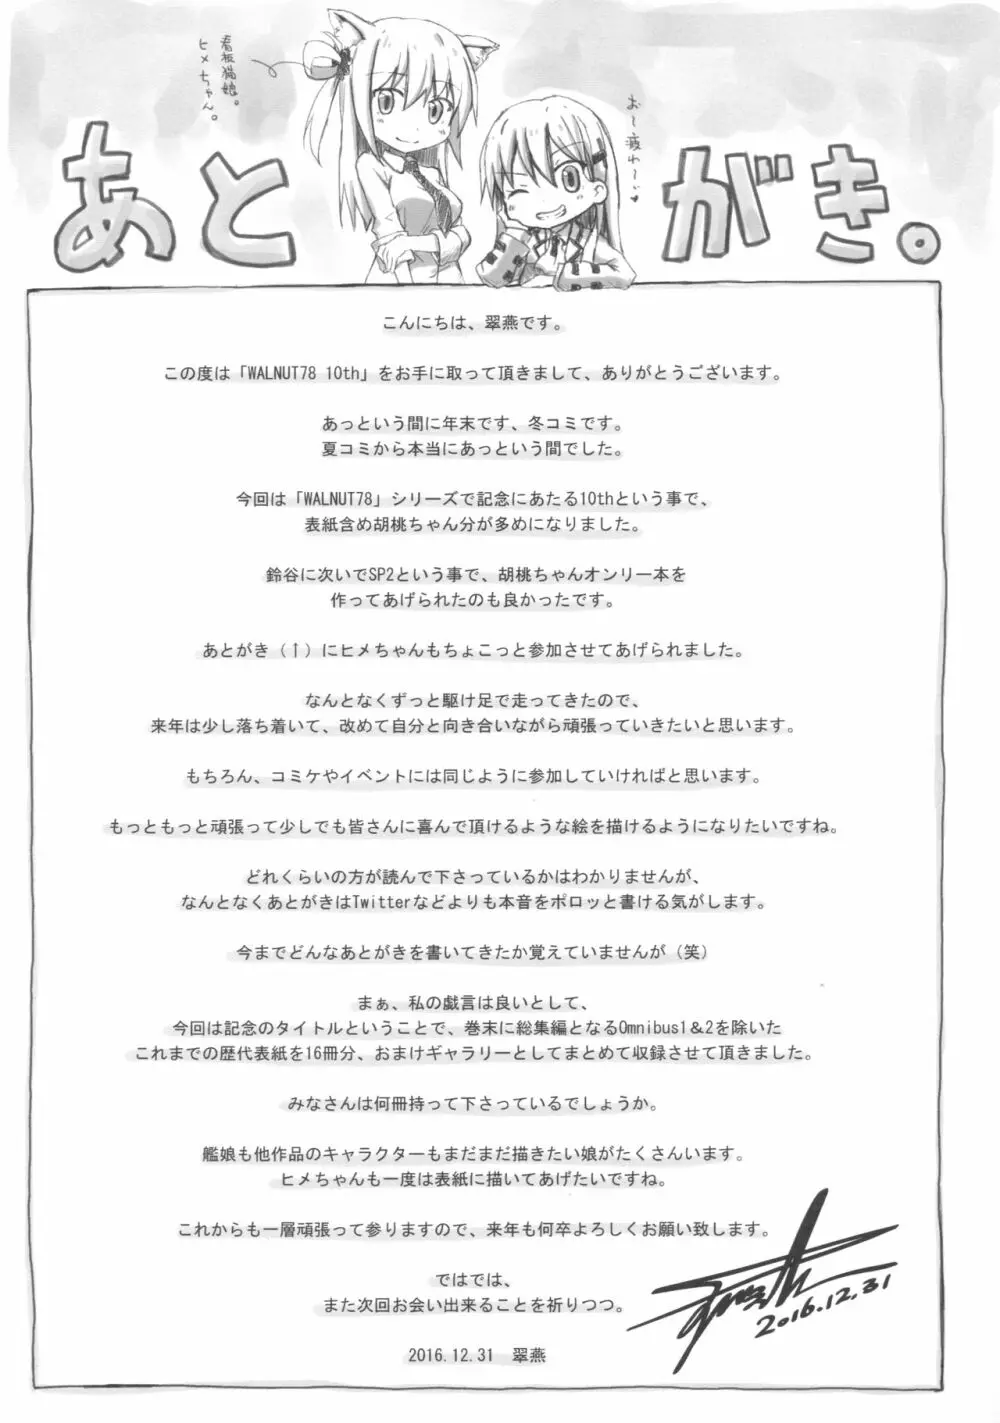 看板猫娘。
ヒメちゃん。
お〜疲れ〜♥
あとがき。
こんにちは、翠燕です。
この度は「WALNUT78 10th」をお手に取って頂きまして、ありがとうございます。
あっという間に年末です、冬コミです。
夏コミから本当にあっという間でした。
今回は「WALNUT78」シリーズで記念にあたる10thという事で、
表紙含め胡桃ちゃん分が多めになりました。
鈴谷に次いでSP2という事で、胡桃ちゃんオンリー本を
作ってあげられたのも良かったです。
あとがき（↑）にヒメちゃんもちょこっと参加させてあげられました。
なんとなくずっと駆け足で走ってきたので、
来年は少し落ち着いて、改めて自分と向き合いながら頑張っていきたいと思います。
もちろん、コミケやイベントには同じように参加していければと思います。
もっともっと頑張って少しでも皆さんに喜んで頂けるような絵を描けるようになりたいですね。
どれくらいの方が読んで下さっているかはわかりませんが、
なんとなくあとがきはTwitterなどよりも本音をポロッと書ける気がします。
今までどんなあとがきを書いてきたか覚えていませんが（笑）
まぁ、私の戯言は良いとして、
今回は記念のタイトルということで、巻末に総集編となるOmnibus1＆2を除いた
これまでの歴代表紙を16冊分、おまけギャラリーとしてまとめて収録させて頂きました。
みなさんは何冊持って下さっているでしょうか。
艦娘も他作品のキャラクターもまだまだ描きたい娘がたくさんいます。
ヒメちゃんも一度は表紙に描いてあげたいですね。
これからも一層頑張って参りますので、来年も何卒よろしくお願い致します。
ではでは、
また次回お会い出来ることを祈りつつ。
2016.12.31
2016.12.31　翠燕